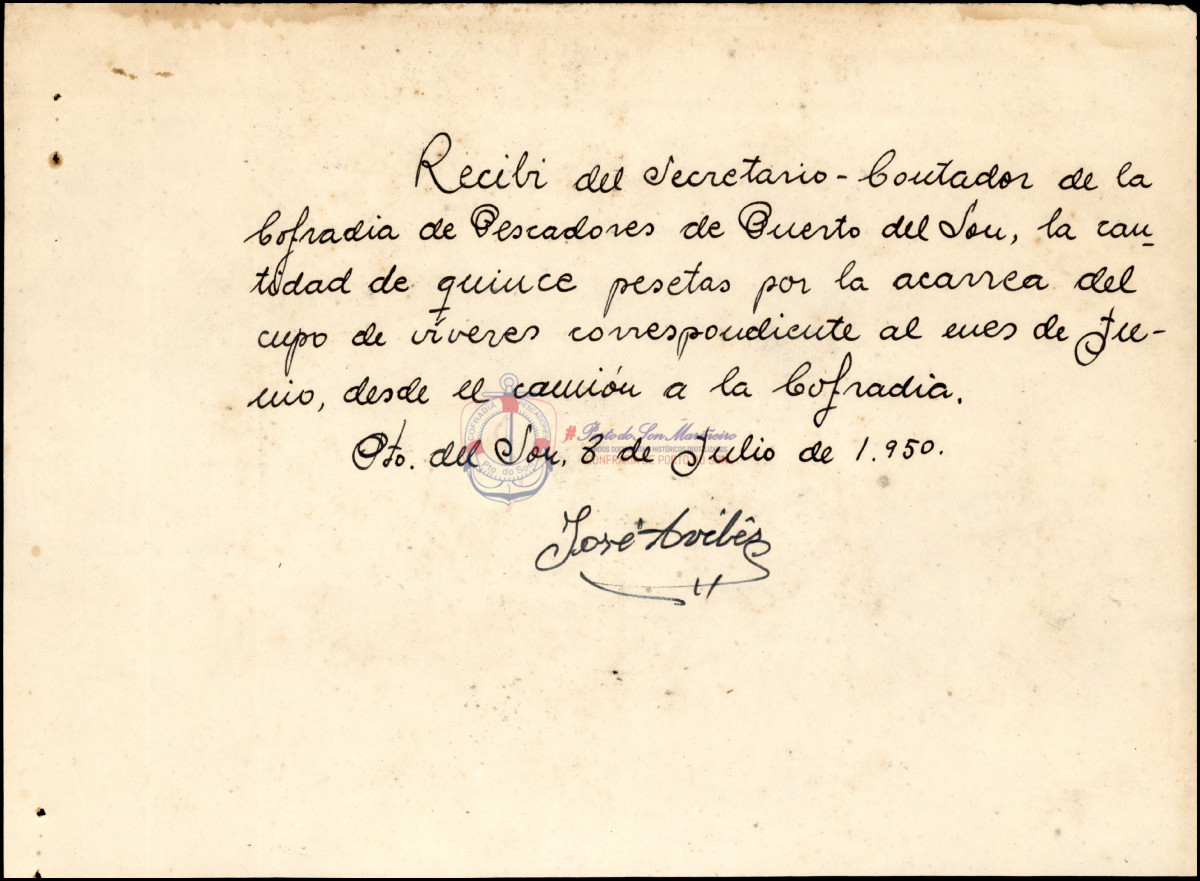 Recibi del Secretario-Contador de la
Cofradia de Pescadores de Puerto del Son, la can-
tidad de quince pesetas por la acarrea del
cupo de víveres correspondiente al mes de Ju-
nio, desde el camión a la Cofradia.
COFRADIA PESCADORES
Pto. do Son
#Porto do Son Mariñeiro
Pto. del Son, 3 de Julio de 1.950.
José